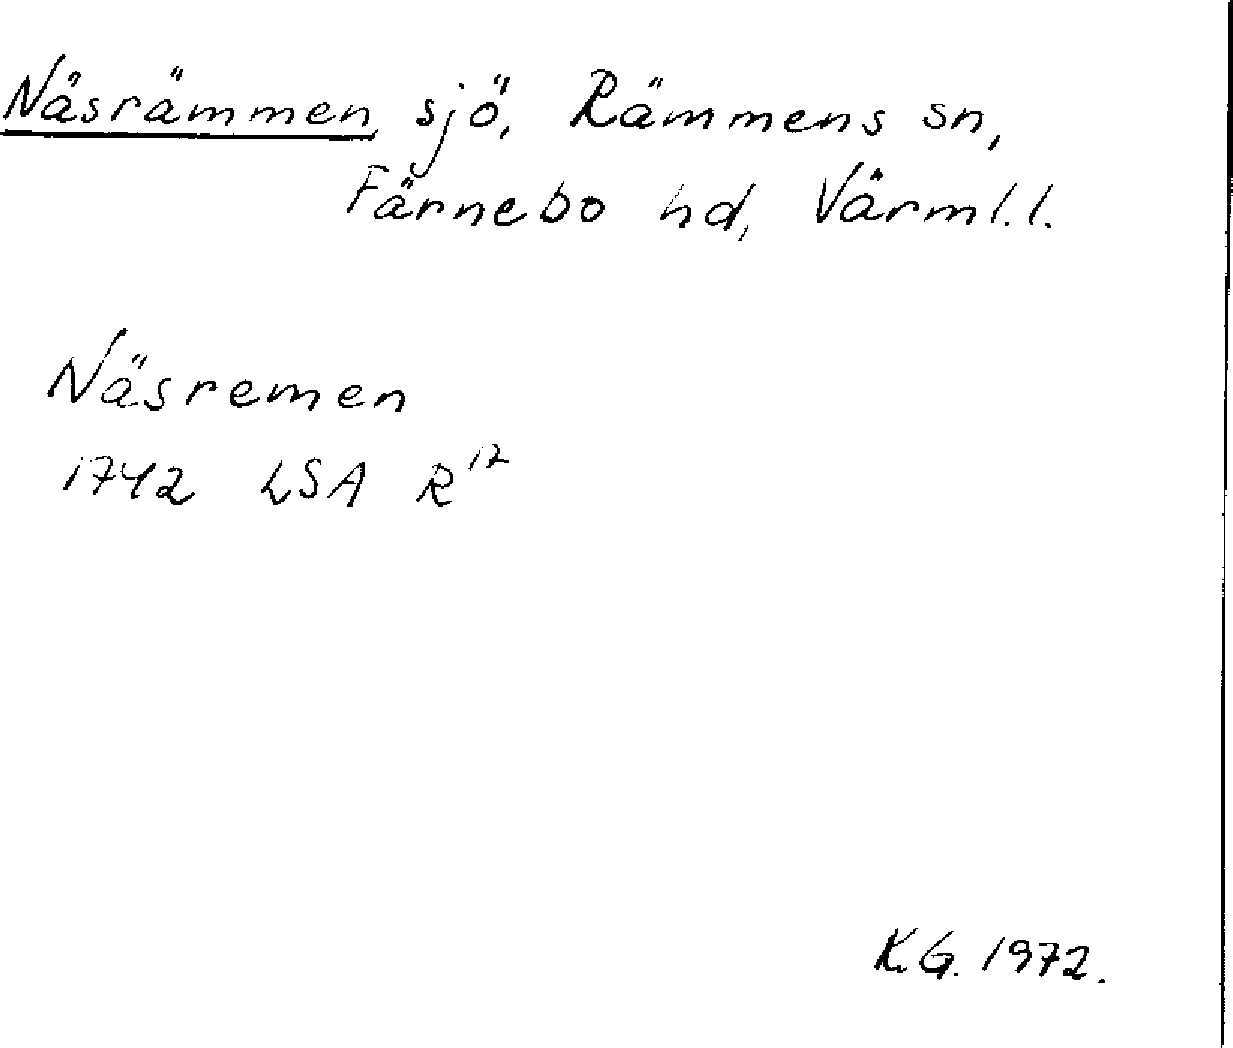 Näsrämmen, sjö, Rämmens sn,
Färnebo hd, Värml. l.
Näsremen
1742 LSA R¹²
K.G. 1972.